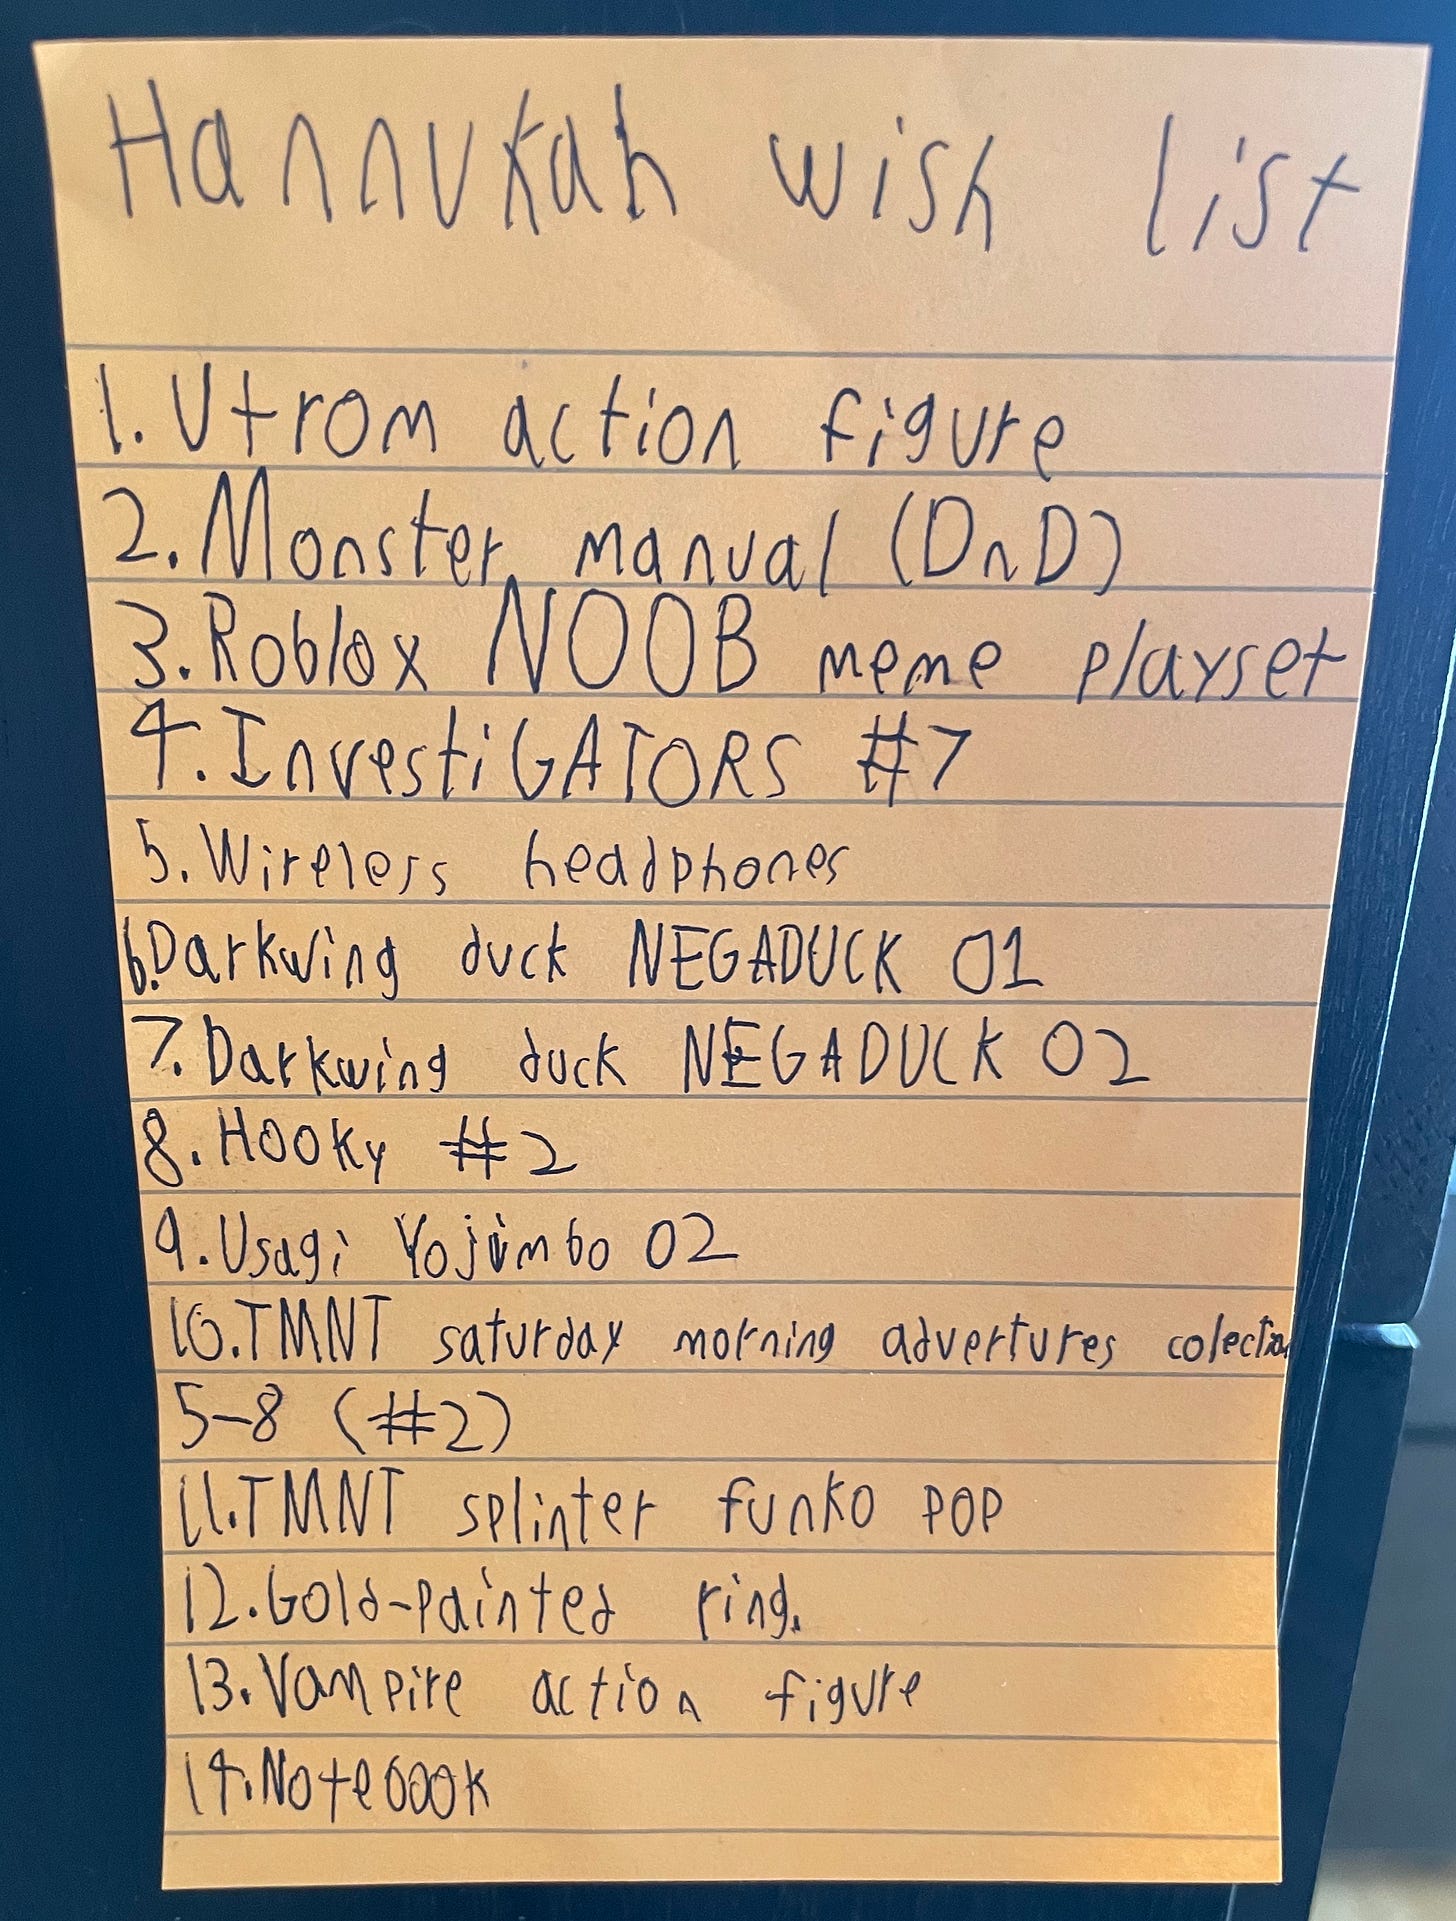 Hannukah wish list
1. Utrom action figure
2. Monster manual (DnD)
3. Roblox NOOB meme playset
4. InvestiGATORS #7
5. Wireless headphones
6. Darkwing duck NEGADUCK 01
7. Darkwing duck NEGADUCK 02
8. HOOKy #2
9. Usagi Yojimbo 02
10. TMNT saturday morning advertures colection
5-8 (#2)
11. TMNT splinter funko POP
12. Gold-painted ring.
13. Vampire action figure
14. Notebook